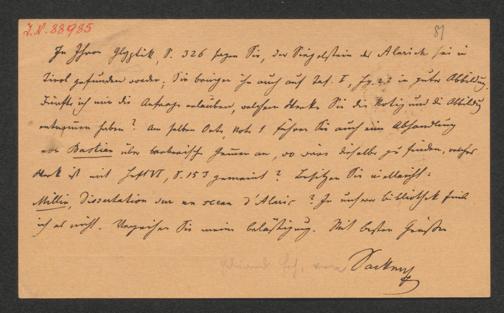 J.N. 88985
81
In Ihrer Glyptik, S. 326 sagen Sie, der Siegelstein des Alarich sei in
Tirol gefunden worden; Sie bringen ihn auch auf Taf. I, Fig. in guter Abbildung.
Dürfte ich mir die Anfrage erlauben, welchem Werke Sie die Notiz und die Abbildung
entnommen haben? Am selben Orte, Note 1 führen Sie auch eine Abhandlung
von Bastien über barbarische Gemmen an, wo dieselbe zu finden, welches
Werk ist mit Heft VI, S. 153 gemeint? Besitzen Sie vielleicht:
Millin, Dissertation sur un sceau d'Alaric? In unserer Bibliothek findet
ich es nicht. Verzeihen Sie meine Belästigung. Mit besten Grüßen
Eduard Frh. von Sacken